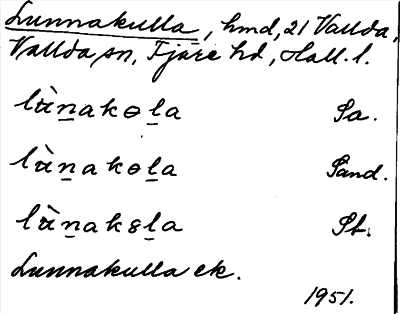 Lunnakulla, hmd, 21 Vallda,
Vallda sn, Fjäre hd, Hall. l.
lùn̲akɵl̲a Sa.
lùn̲akɵl̲a Sand.
lùn̲aksl̲a St.
Lunnakulla ek.
1951.